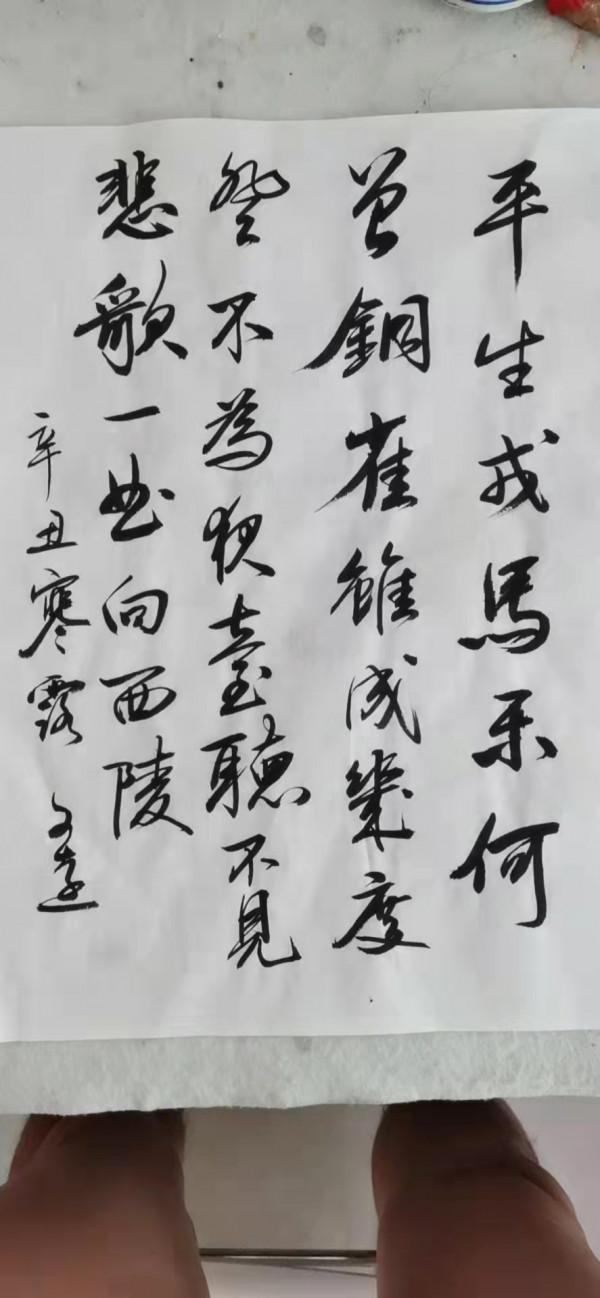 平生戎馬乐何
曾銅雀雖成幾度
登不為夜臺聽不見
悲歌一曲向西陵
辛丑寒露 文